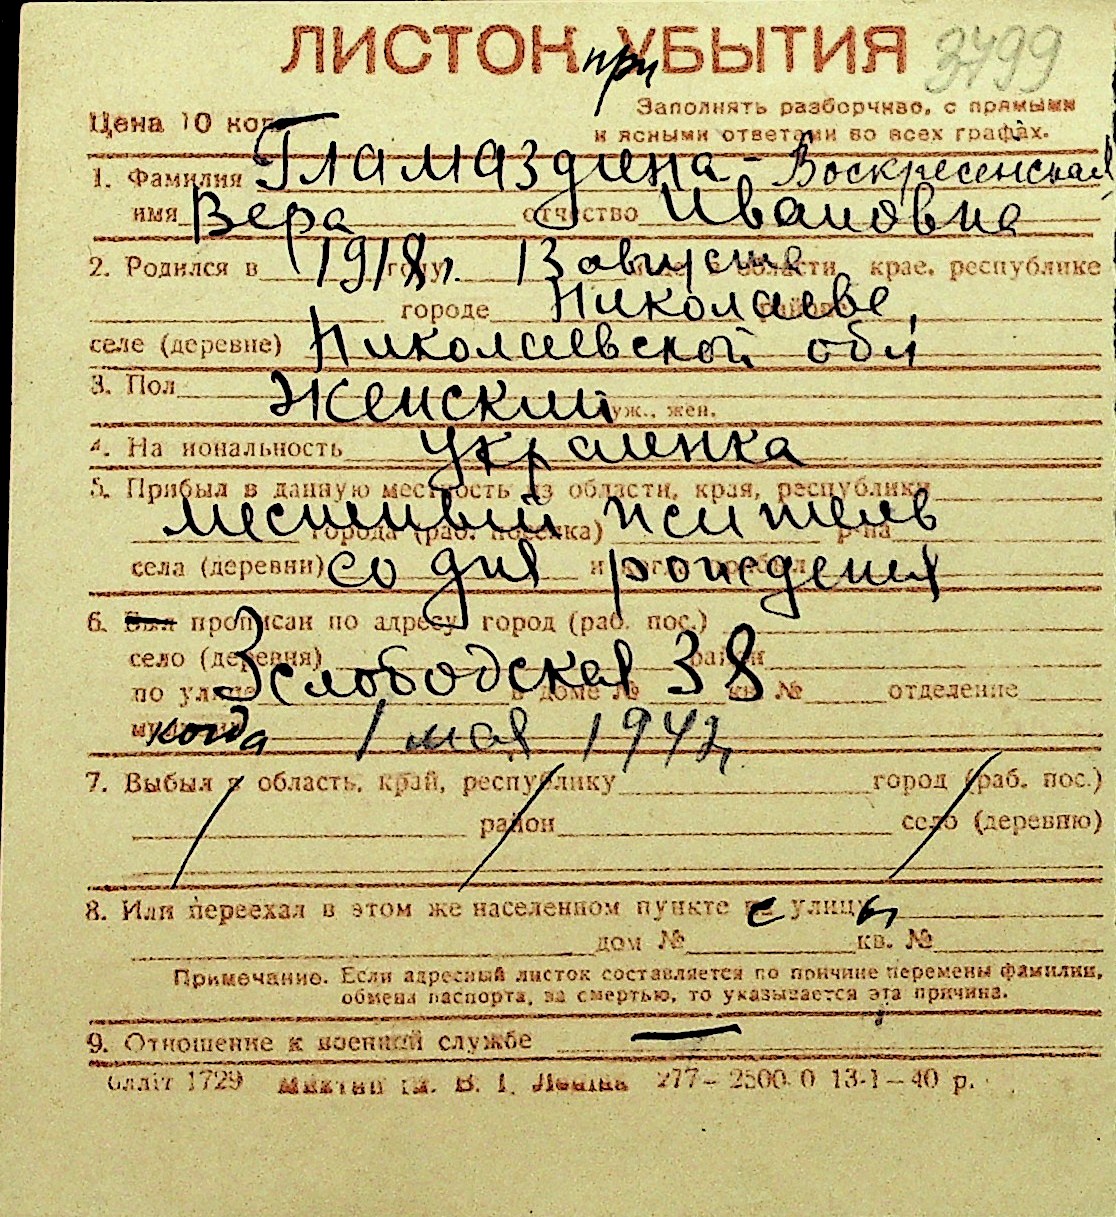 ЛИСТОК при УБЫТИЯ 3499
Заполнять разборчиво, с прямыми
Цена 10 коп.
и ясными ответами во всех графах.
1. Фамилия Гламаздина - Воскресенская
имя Вера отчество Ивановна
2. Родился в 1918 г. году 13 августа области, крае, республике
городе Николаеве,
селе (деревне) Николаевской обл.
3. Пол женский муж., жен.
4. Национальность украинка
5. Прибыл в данную местность из области, края, республики
местный житель города (раб. поселка) р-на
села (деревни) со дня рождения
6. Был прописан по адресу: город (раб. пос.)
село (деревня) район
по улице 3 слободская 38 в доме № кв. № отделение
когда 1 мая 1942 г.
7. Выбыл в область, край, республику город (раб. пос.)
район село (деревню)
8. Или переехал в этом же населенном пункте с улицы
дом № кв. №
Примечание. Если адресный листок составляется по причине перемены фамилии,
обмена паспорта, за смертью, то указывается эта причина.
9. Отношение к военной службе —
1729 В. І. Леніна 277—2500.0 13-1—40 р.